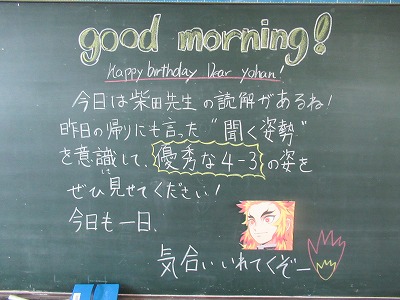 good morning!
Happy birthday Dear yohan!
今日は柴田先生の読解があるね!
昨日の帰りにも言った“聞く姿勢”
を意識して、優秀な4-3の姿を
ぜひ見せてください!
今日も一日、
気合いいれてくぞー